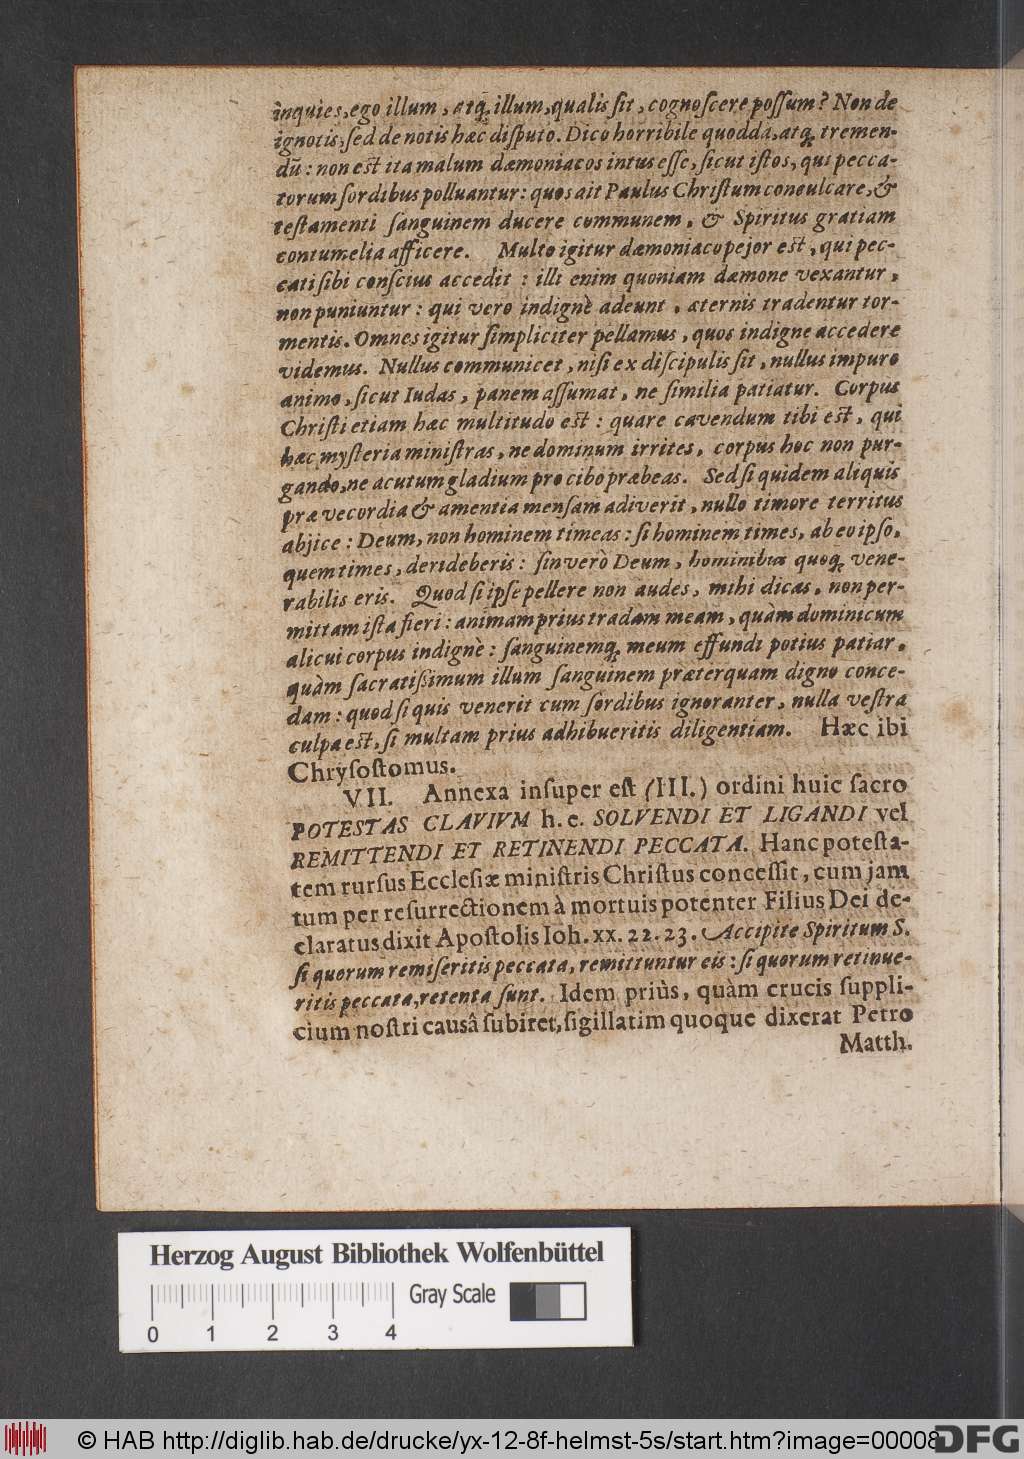 inquies, ego illum, atq; illum, qualis ſit, cognoſcere poſſum? Non de
ignotis, ſed de notis hæc diſputo. Dico horribile quodda, atq; tremen-
dũ: non eſt ita malum dæmoniacos intus eſſe, ſicut iſtos, qui pecca-
torum ſordibus polluantur: quos ait Paulus Chriſtum conculcare, &
teſtamenti ſanguinem ducere communem, & Spiritus gratiam
contumelia afficere. Multo igitur dæmoniaco pejor eſt, qui pec-
cati ſibi conſcius accedit: illi enim quoniam dæmone vexantur,
non puniuntur: qui vero indignè adeunt, æternis tradentur tor-
mentis. Omnes igitur ſimpliciter pellamus, quos indigne accedere
videmus. Nullus communicet, niſi ex diſcipulis ſit, nullus impuro
animo, ſicut Iudas, panem aſſumat, ne ſimilia patiatur. Corpus
Chriſti etiam hæc multitudo eſt: quare cavendum tibi eſt, qui
hæc myſteria miniſtras, ne dominum irrites, corpus hoc non pur-
gando, ne acutum gladium pro cibo præbeas. Sed ſi quidem aliquis
præ vecordia & amentia menſam adiverit, nullo timore territus
abjice: Deum, non hominem timeas: ſi hominem times, ab eo ipſo,
quem times, derideberis: ſin verò Deum, hominibus quoq; vene-
rabilis eris. Quod ſi ipſe pellere non audes, mihi dicas, non per-
mittam iſta fieri: animam prius tradam meam, quàm dominicum
alicui corpus indignè: ſanguinemq; meum effundi potius patiar,
quàm ſacratiſſimum illum ſanguinem præterquam digno conce-
dam: quod ſi quis venerit cum ſordibus ignoranter, nulla veſtra
culpa eſt, ſi multam prius adhibueritis diligentiam. Hæc ibi
Chryſoſtomus.
VII. Annexa inſuper eſt (III.) ordini huic ſacro
POTESTAS CLAVIVM h. e. SOLVENDI ET LIGANDI vel
REMITTENDI ET RETINENDI PECCATA. Hanc poteſta-
tem rurſus Eccleſiæ miniſtris Chriſtus conceſſit, cum jam
tum per reſurrectionem à mortuis potenter Filius Dei de-
claratus dixit Apoſtolis Ioh. xx. 22. 23. Accipite Spiritum S.
ſi quorum remiſeritis peccata, remittuntur eis: ſi quorum retinue-
ritis peccata, retenta ſunt. Idem priùs, quàm crucis ſuppli-
cium noſtri causâ ſubiret, ſigillatim quoque dixerat Petro
Matth.
Herzog August Bibliothek Wolfenbüttel
Gray Scale
0 1 2 3 4
© HAB http://diglib.hab.de/drucke/yx-12-8f-helmst-5s/start.htm?image=00008
DFG